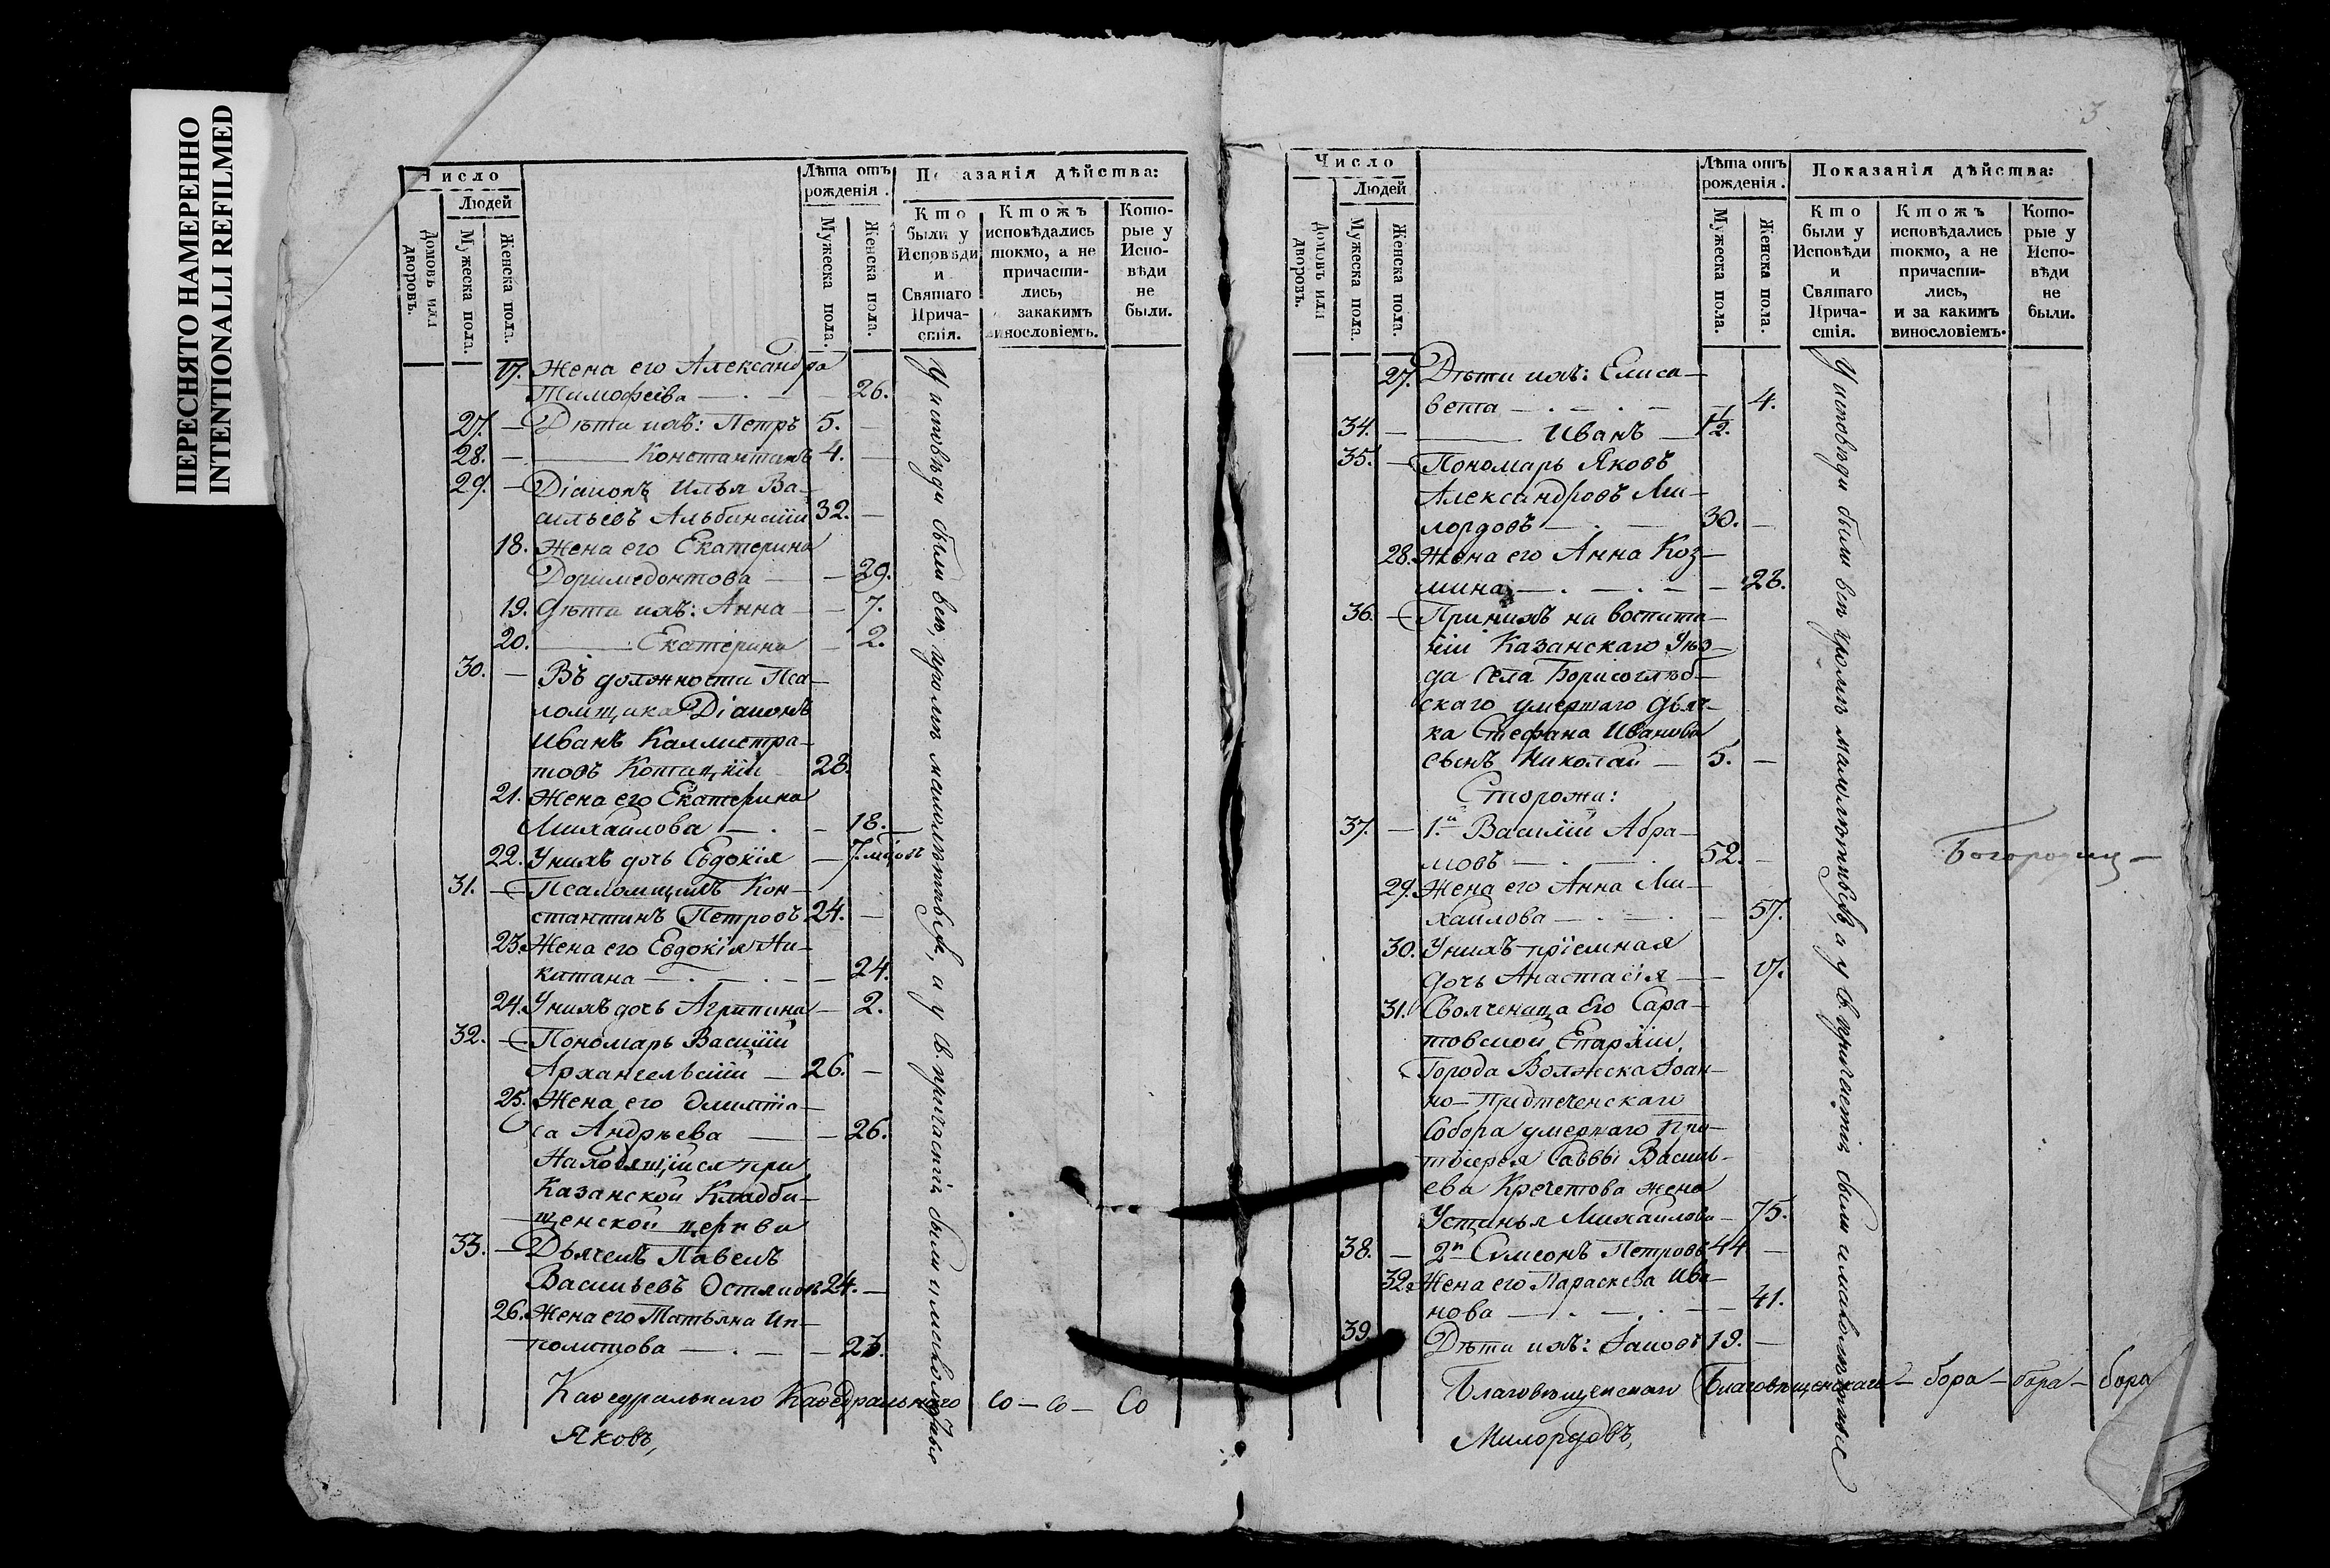 ПЕРЕСНЯТО НАМЕРЕННО
INTENTIONALLI REFILMED
Число
Людей
Домовъ или дворовъ.
Мужеска пола.
Женска пола.
Лѣта отъ рожденія.
Мужеска пола.
Женска пола.
Показанія дѣйства:
Кто были у Исповѣди и Святаго Прича-стія.
Ктожъ исповѣдались токмо, а не причасти-лись, закакимъ винословіемъ.
Кото-рые у Испо-вѣди не были.
17. Жена его Александра
Тимофеева — 26.
27. — Дѣти ихъ: Петръ 5. —
28. — Константинъ 4. —
29. — Діаконъ Илья Ва-
сильевъ Альбинскій 32. —
18. Жена его Екатерина
Доримедонтова — 29.
19. Дѣти ихъ: Анна — 7.
20. Екатерина — 2.
30. — Въ должности Пса-
ломщика Діаконъ
Иванъ Каллистра-
товъ 28.
21. Жена его Екатерина
Михайлова — 18.
22. Унихъ дочь Евдокія — 7.
31. — Псаломщикъ Кон-
стантинъ Петровъ 24. —
23. Жена его Евдокія Ни-
китина — 24.
24. Унихъ дочь Агрипина — 2.
32. — Пономарь Василій
Архангельскій — 26. —
25. Жена его Олимпія-
са Андрѣева — 26.
Находящійся при
Казанской Кладби-
щенской церкви
33. — Дьячекъ Павелъ
Васильевъ 24. —
26. Жена его Татьяна Ип-
политова — 23.
У исповѣди были всѣ, кромѣ малолѣтныхъ, а у св. причастія были и малолѣтные
Каѳедральнаго Каѳедральнаго Со — Со — Со
Яковъ,
3.
Число
Людей
Домовъ или дворовъ.
Мужеска пола.
Женска пола.
Лѣта отъ рожденія.
Мужеска пола.
Женска пола.
Показанія дѣйства:
Кто были у Исповѣди и Святаго Прича-стія.
Ктожъ исповѣдались токмо, а не причасти-лись, и за какимъ винословіемъ.
Кото-рые у Испо-вѣди не были.
27. Дѣти ихъ: Елиса-
вета — 4.
34. — Иванъ — 1/2.
35. — Пономарь Яковъ
Александровъ Ми-
лордовъ — 30. —
28. Жена его Анна Коз-
мина — 28.
36. — на воспита-
ніи Казанскаго Уѣз-
да Села Борисоглѣб-
скаго умершаго Дьяч-
ка Стефана Иванова
сынъ Николай — 5. —
Сторожа:
37. — 1.й Василій Абра-
мовъ — 52. —
29. Жена его Анна Ми-
хайлова — 57.
30. Унихъ пріемная
дочь Анастасія — 17.
31. Его Сара-
товской Епархіи,
Города Волжска Іоан-
но-Предтеченскаго
Собора умершаго Про-
тоіерея Саввы Василь-
ева Кречетова жена
Устинья Михайлова — 75.
38. — 2й Симеонъ Петровъ 44 —
32. Жена его Параскева Ива-
нова — 41.
39. Дѣти ихъ: Іаковъ 19. —
У исповѣди были всѣ кромѣ малолѣтныхъ, а у св. причастія были и малолѣтные
Благовѣщенскаго Благовѣщенскаго — бора — бора — бора
Милордовъ,